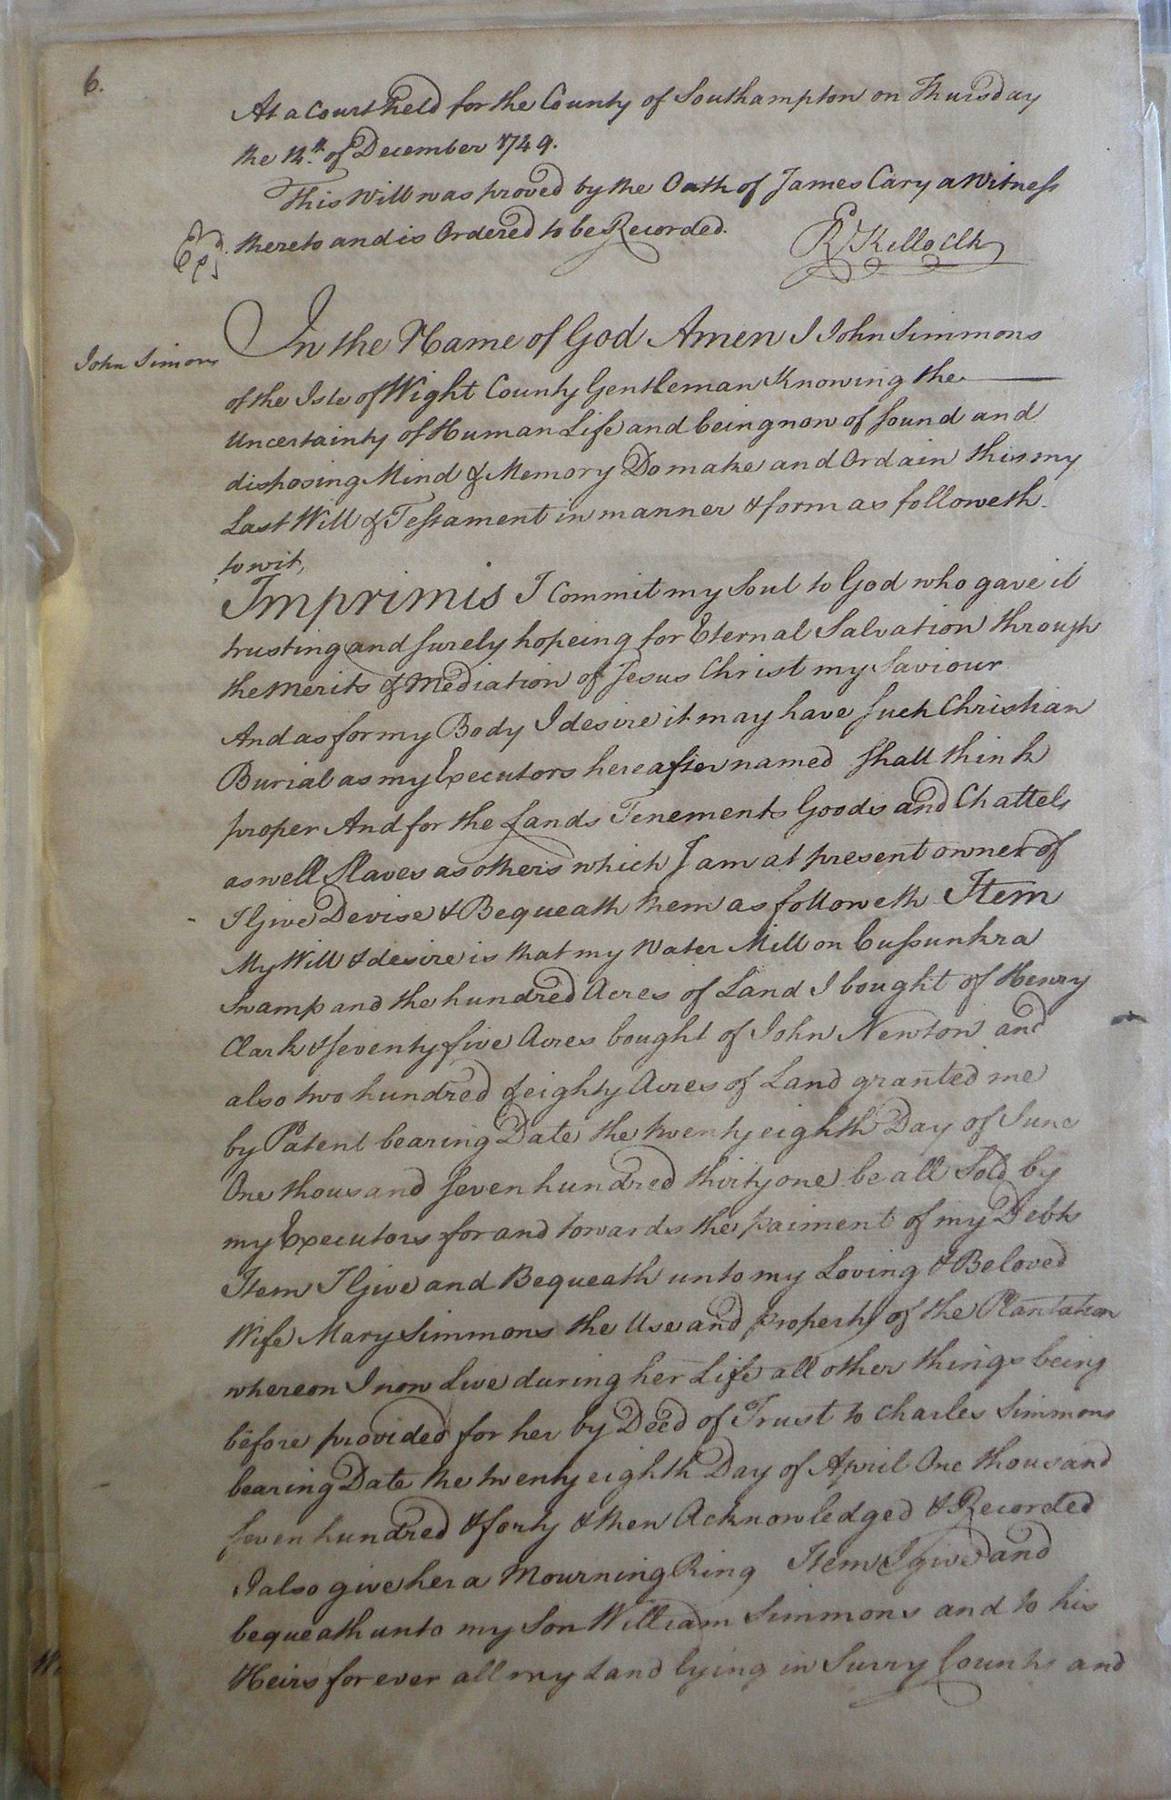 6.
At a Court held for the County of Southampton on Thursday
the 14th of December 1749.
This Will was proved by the Oath of James Cary a Witness
thereto and is Ordered to be Recorded.
Exd.
Rd Kello ClK
In the Name of God Amen I John Simmons
John Simons
of the Isle of Wight County Gentleman Knowing the
Uncertainty of Human Life and being now of sound and
disposing Mind & Memory Do make and Ordain this my
Last Will & Testament in manner & form as followeth.
to wit,
Imprimis I commit my Soul to God who gave it
trusting and surely hopeing for Eternal Salvation through
the Merits & Mediation of Jesus Christ my Saviour
And as for my Body I desire it may have such Christian
Burial as my Executors hereafter named shall think
proper And for the Lands Tenements Goods and Chattels
as well Slaves as others which I am at present owner of
I Give Devise & Bequeath them as followeth Item
My Will & desire is that my Water Mill on Cussunkra
Swamp and the hundred Acres of Land I bought of Henry
Clark & seventy five Acres bought of John Newton and
also two hundred & eighty Acres of Land granted me
by Patent bearing Date the twenty eighth Day of June
One thousand seven hundred thirty one be all Sold by
my Executors for and towards the paiment of my Debts
Item I Give and Bequeath unto my Loving & Beloved
Wife Mary Simmons the Use and property of the Plantation
whereon I now Live during her Life all other things being
before provided for her by Deed of Trust to Charles Simmons
bearing Date the twenty eighth Day of April One thousand
seven hundred & forty & then Acknowledged & Recorded
I also give her a Mourning Ring Item I give and
bequeath unto my Son William Simmons and to his
Heirs for ever all my Land lying in Surry County and